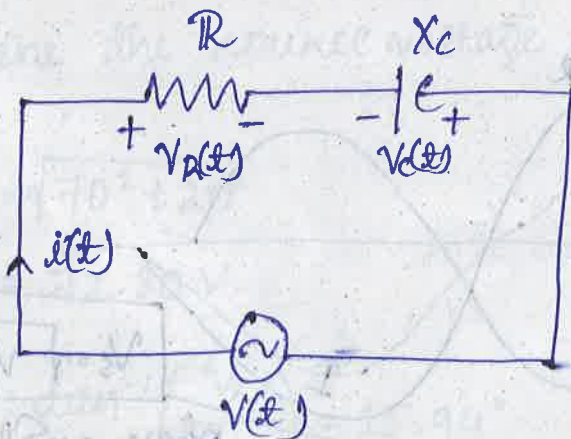 R X_C
+ - - +
V_R(t) V_C(t)
i(t)
V(t)